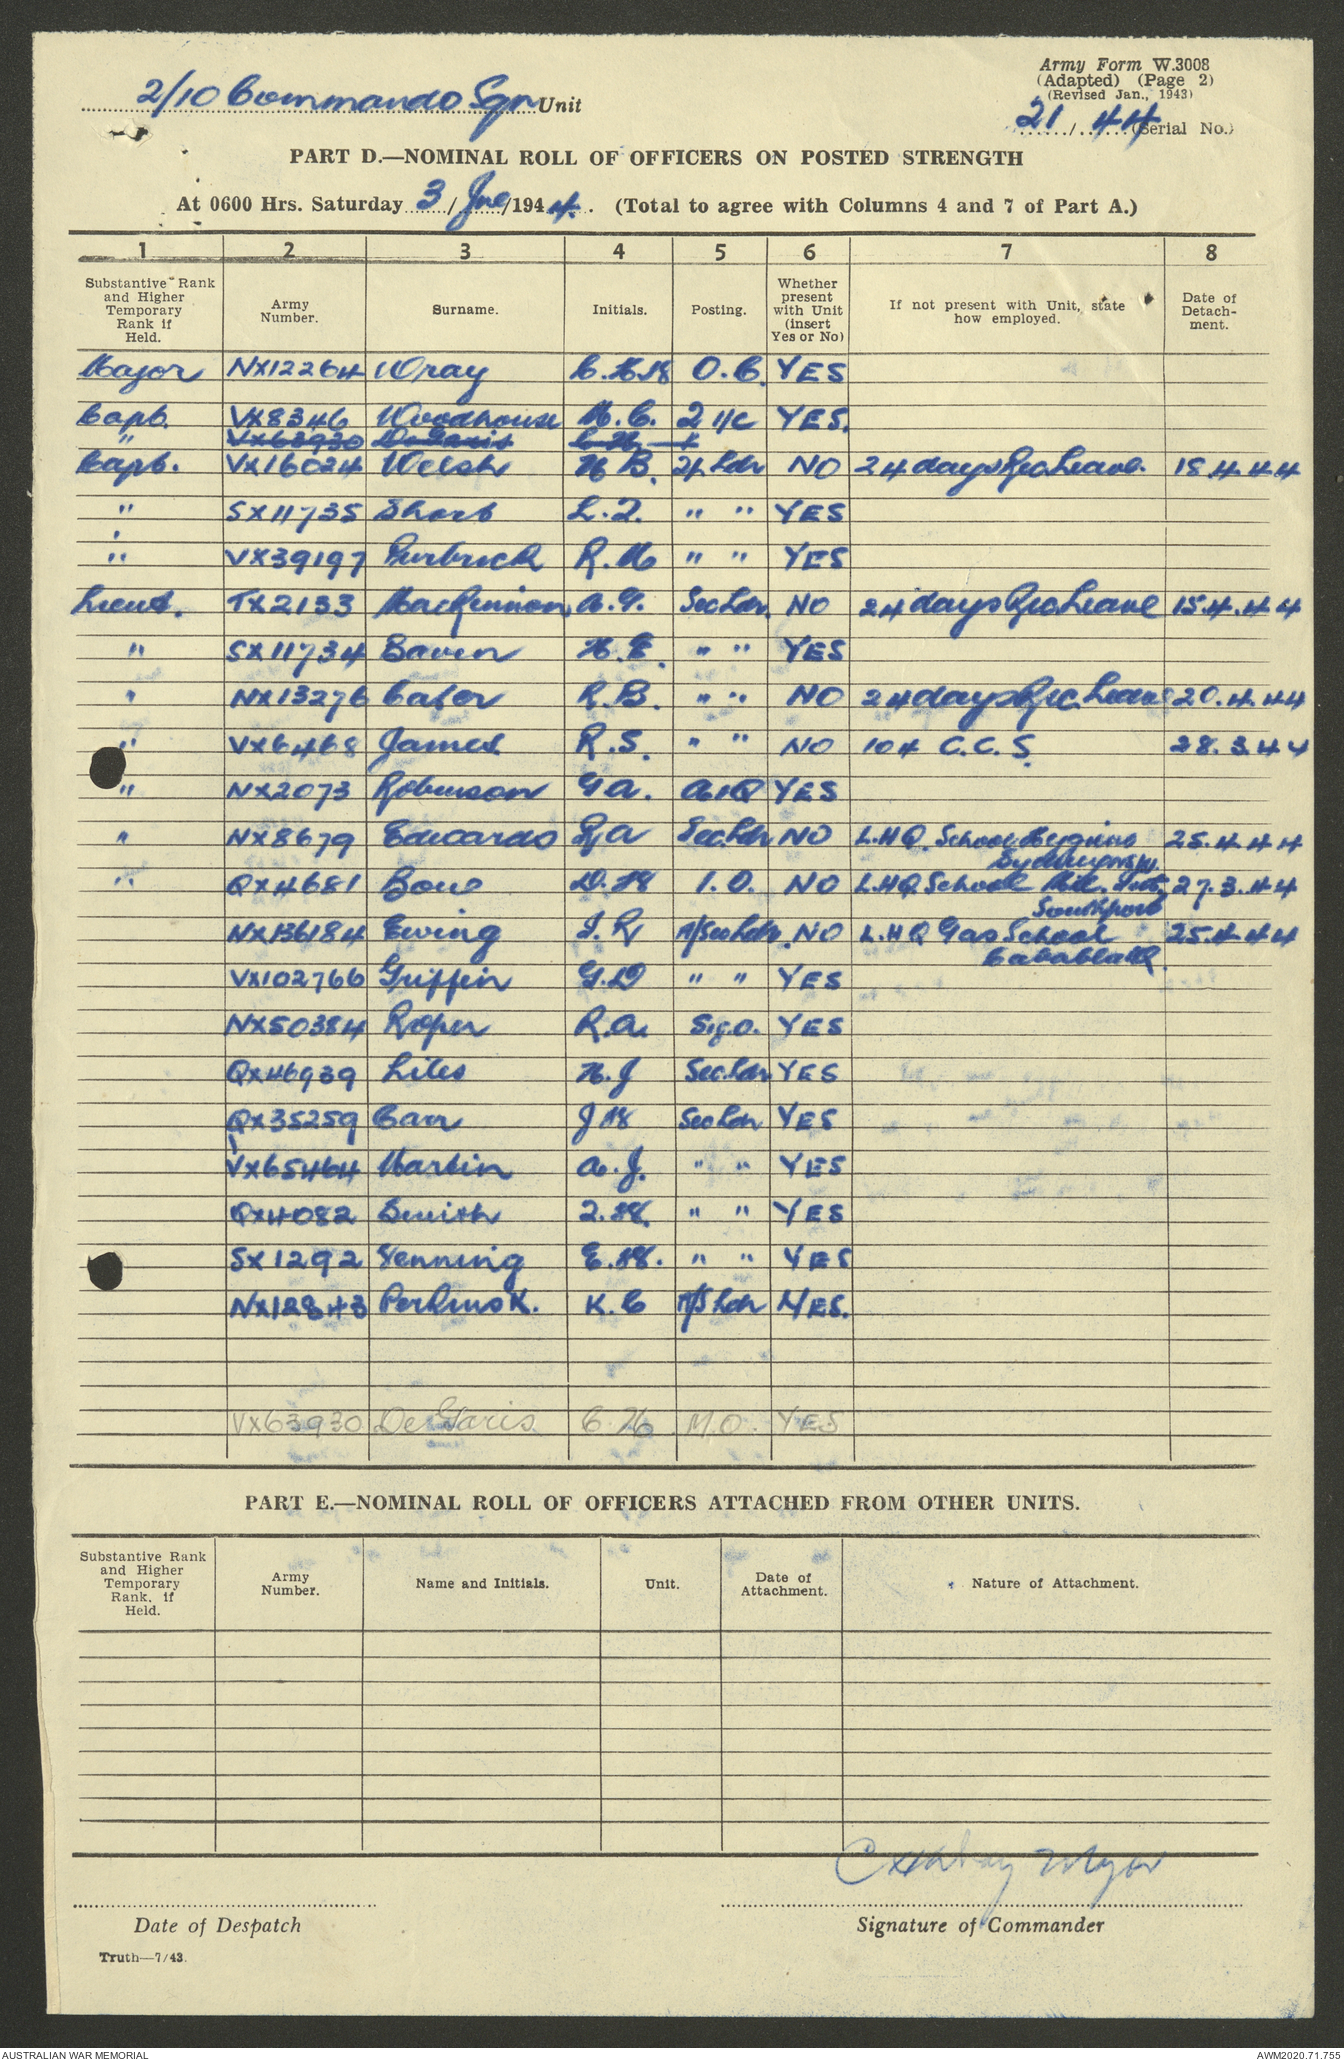 Army Form W.3008
(Adapted) (Page 2)
(Revised Jan., 1943)
2/10 Commando Sqn Unit
21/44 (Serial No.)
PART D.—NOMINAL ROLL OF OFFICERS ON POSTED STRENGTH
At 0600 Hrs. Saturday 3/Jne/1944. (Total to agree with Columns 4 and 7 of Part A.)
1 2 3 4 5 6 7 8
Substantive Rank and Higher Temporary Rank if Held. Army Number. Surname. Initials. Posting. Whether present with Unit (insert Yes or No) If not present with Unit, state how employed. Date of Detachment.
Major NX12264 Wray O.C. YES
Capt. VX8346 Woodhouse 2 i/c YES.
" VX63930 DeGaris
Capt. VX16024 Welsh NO 24 days Rec Leave. 18.4.44
" SX11735 " " YES
" VX39197 R.M " " YES
Lieut. TX2133 MacKinnon A.G. Sec Ldr. NO 24 days Rec Leave 15.4.44
" SX11734 " " YES
" NX13276 R.B. " " NO 24 days Rec. Leave 20.4.44
" VX6468 James R.S. " " NO 104 C.C.S. 28.3.44
" NX2073 Robinson G A. YES
" NX8679 Edwards Sec Ldr NO L.HQ. School Hygiene Sydney 25.4.44
" QX4681 Bow I.O. NO L.HQ School Mil. Southport 27.3.44
NX136184 Ewing NO L.HQ Gas School Cabarlah. 25.4.44
VX102766 Griffin G.D " " YES
NX50384 Roper R.A. Sig.O. YES
QX46939 Liles H.J Sec.Ldr YES
QX35259 Carr Sec Ldr YES
VX65464 Martin A.J. " " YES
QX4082 Smith " " YES
SX1292 Yenning " " YES
NX12843 Perkins K. K.C YES.
VX63930 DeGaris C.H M.O. YES
PART E.—NOMINAL ROLL OF OFFICERS ATTACHED FROM OTHER UNITS.
Substantive Rank and Higher Temporary Rank, if Held. Army Number. Name and Initials. Unit. Date of Attachment. Nature of Attachment.
Wray Major
Date of Despatch Signature of Commander
Truth—7/43.
AUSTRALIAN WAR MEMORIAL AWM2020.71.755